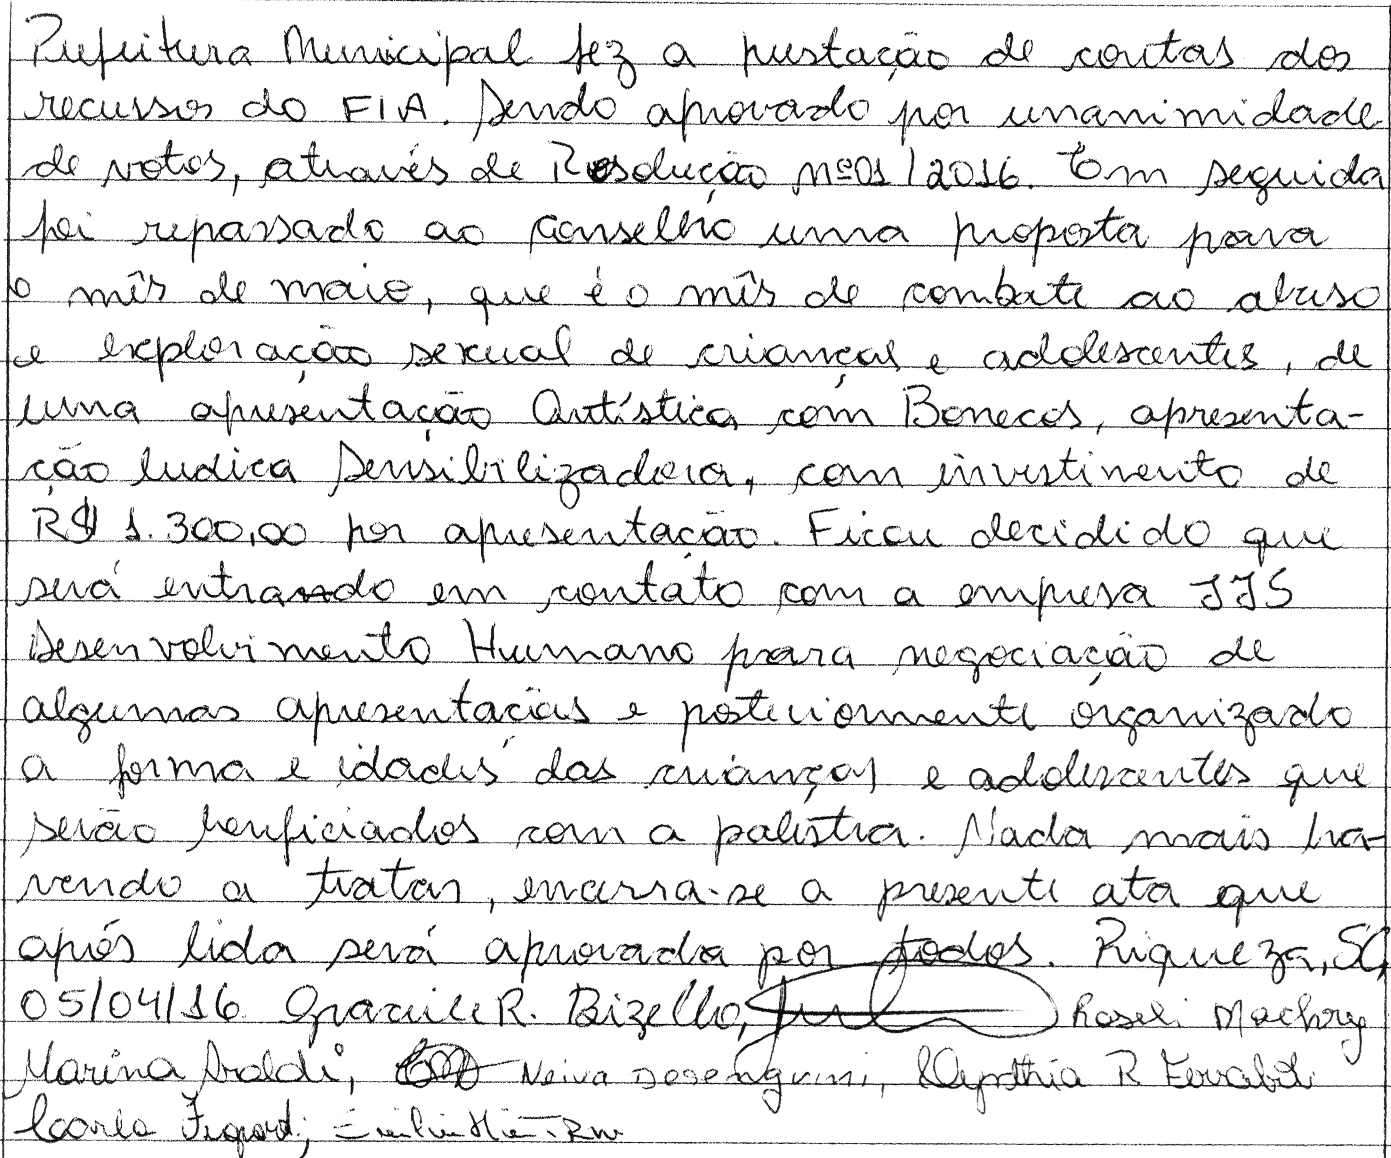 Prefeitura Municipal fez a prestação de contas dos
recursos do FIA. Sendo aprovado por unanimidade
de votos, através de Resolução nº01/2016. Em seguida
foi repassado ao Conselho uma proposta para
o mês de maio, que é o mês de combate ao abuso
e exploração sexual de crianças e adolescentes, de
uma apresentação Artística com Bonecos, apresenta-
ção ludica Sensibilizadora, com investimento de
R$ 1.300,00 por apresentação. Ficou decidido que
será entrando em contato com a empresa JJS
Desenvolvimento Humano para negociação de
algumas apresentações e posteriormente organizado
a forma e idades das crianças e adolescentes que
serão beneficiados com a palestra. Nada mais ha-
vendo a tratar, encerra-se a presente ata que
após lida será aprovada por todos. Riqueza, SC,
05/04/16 Gracieile R. Bizello, Roseli Machry
Marina Araldi, Neiva
Carla